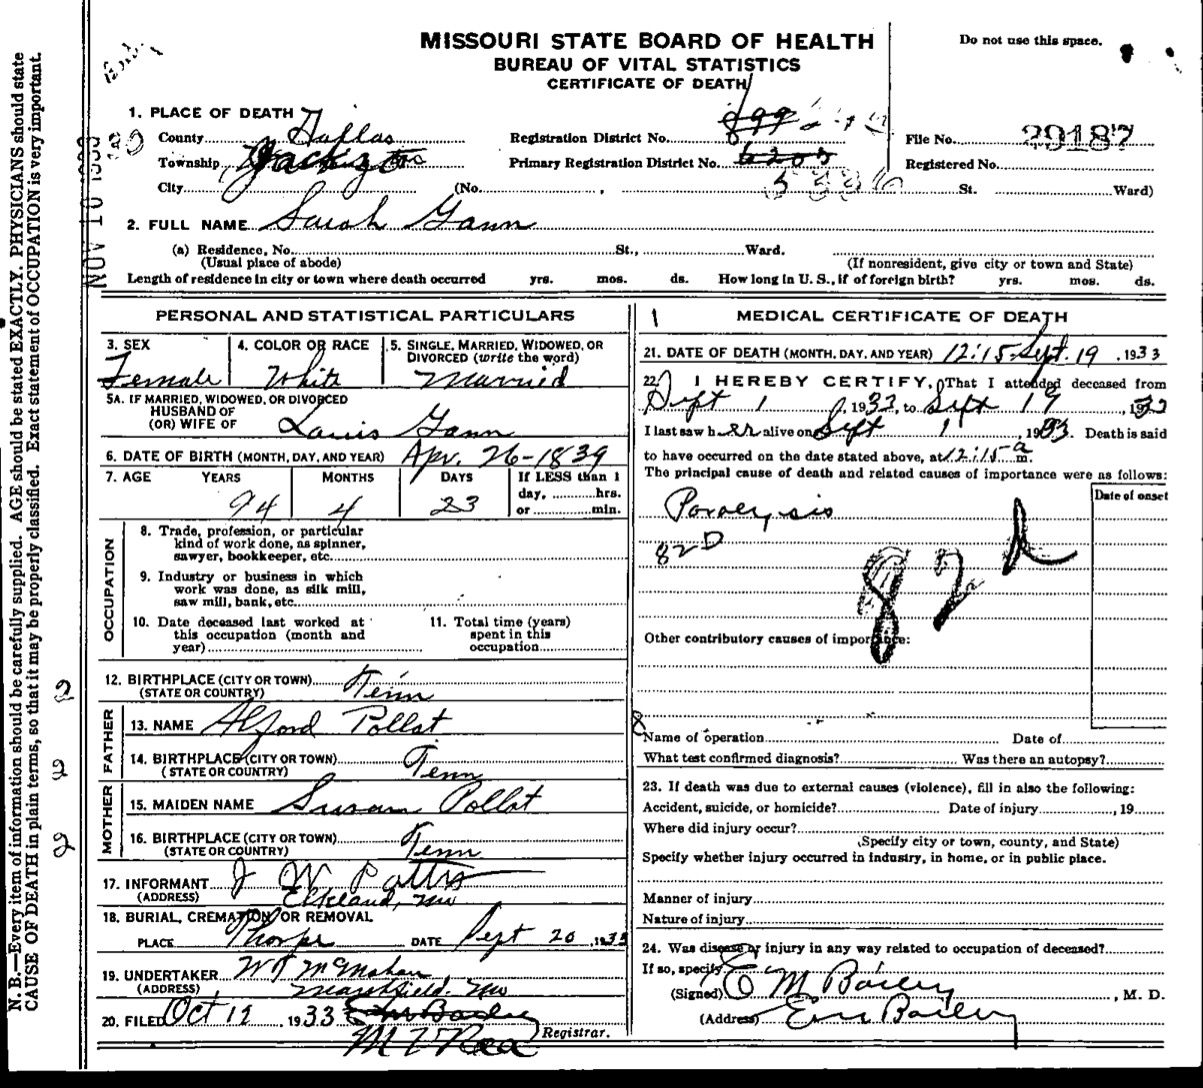 MISSOURI STATE BOARD OF HEALTH
BUREAU OF VITAL STATISTICS
CERTIFICATE OF DEATH
Do not use this space.
1. PLACE OF DEATH
County Dallas Registration District No. 899 File No. 29187
Township Jackson Primary Registration District No. 6203 Registered No.
City (No. , St. Ward)
5336
NOV 10 1933
2. FULL NAME Sarah Gann
(a) Residence, No. St., Ward.
(Usual place of abode) (If nonresident, give city or town and State)
Length of residence in city or town where death occurred yrs. mos. ds. How long in U. S., if of foreign birth? yrs. mos. ds.
PERSONAL AND STATISTICAL PARTICULARS
3. SEX Female
4. COLOR OR RACE White
5. SINGLE, MARRIED, WIDOWED, OR DIVORCED (write the word) Married
5A. IF MARRIED, WIDOWED, OR DIVORCED
HUSBAND OF
(OR) WIFE OF Louis Gann
6. DATE OF BIRTH (MONTH, DAY, AND YEAR) Apr. 26-1839
7. AGE YEARS MONTHS DAYS If LESS than 1
day, hrs.
or min.
94 4 23
OCCUPATION
8. Trade, profession, or particular
kind of work done, as spinner,
sawyer, bookkeeper, etc.
9. Industry or business in which
work was done, as silk mill,
saw mill, bank, etc.
10. Date deceased last worked at
this occupation (month and
year)
11. Total time (years)
spent in this
occupation
12. BIRTHPLACE (CITY OR TOWN) Tenn
(STATE OR COUNTRY)
FATHER
13. NAME Alford Pollat
14. BIRTHPLACE (CITY OR TOWN) Tenn
(STATE OR COUNTRY)
MOTHER
15. MAIDEN NAME Susan Pollat
16. BIRTHPLACE (CITY OR TOWN) Tenn
(STATE OR COUNTRY)
17. INFORMANT J W Potts
(ADDRESS) Elkland, Mo
18. BURIAL, CREMATION, OR REMOVAL
PLACE Thorpe DATE Sept 20, 1933
19. UNDERTAKER W J McMahan
(ADDRESS) Marshfield, Mo
20. FILED Oct 12, 1933 Em Bailey
M T Rea Registrar.
1 MEDICAL CERTIFICATE OF DEATH
21. DATE OF DEATH (MONTH, DAY, AND YEAR) 12:15 Sept. 19, 1933
22. I HEREBY CERTIFY, That I attended deceased from
Sept 1, 1933, to Sept 19, 1933
I last saw her alive on Sept 1 1933. Death is said
to have occurred on the date stated above, at 12:15 a m.
The principal cause of death and related causes of importance were as follows:
Date of onset
Paralysis
82D
82
Other contributory causes of importance:
Name of operation Date of
What test confirmed diagnosis? Was there an autopsy?
23. If death was due to external causes (violence), fill in also the following:
Accident, suicide, or homicide? Date of injury , 19
Where did injury occur?
(Specify city or town, county, and State)
Specify whether injury occurred in industry, in home, or in public place.
Manner of injury
Nature of injury
24. Was disease or injury in any way related to occupation of deceased?
If so, specify
(Signed) E M Bailey, M. D.
(Address) Em Bailey
N. B.—Every item of information should be carefully supplied. AGE should be stated EXACTLY. PHYSICIANS should state
CAUSE OF DEATH in plain terms, so that it may be properly classified. Exact statement of OCCUPATION is very important.
2
2
2